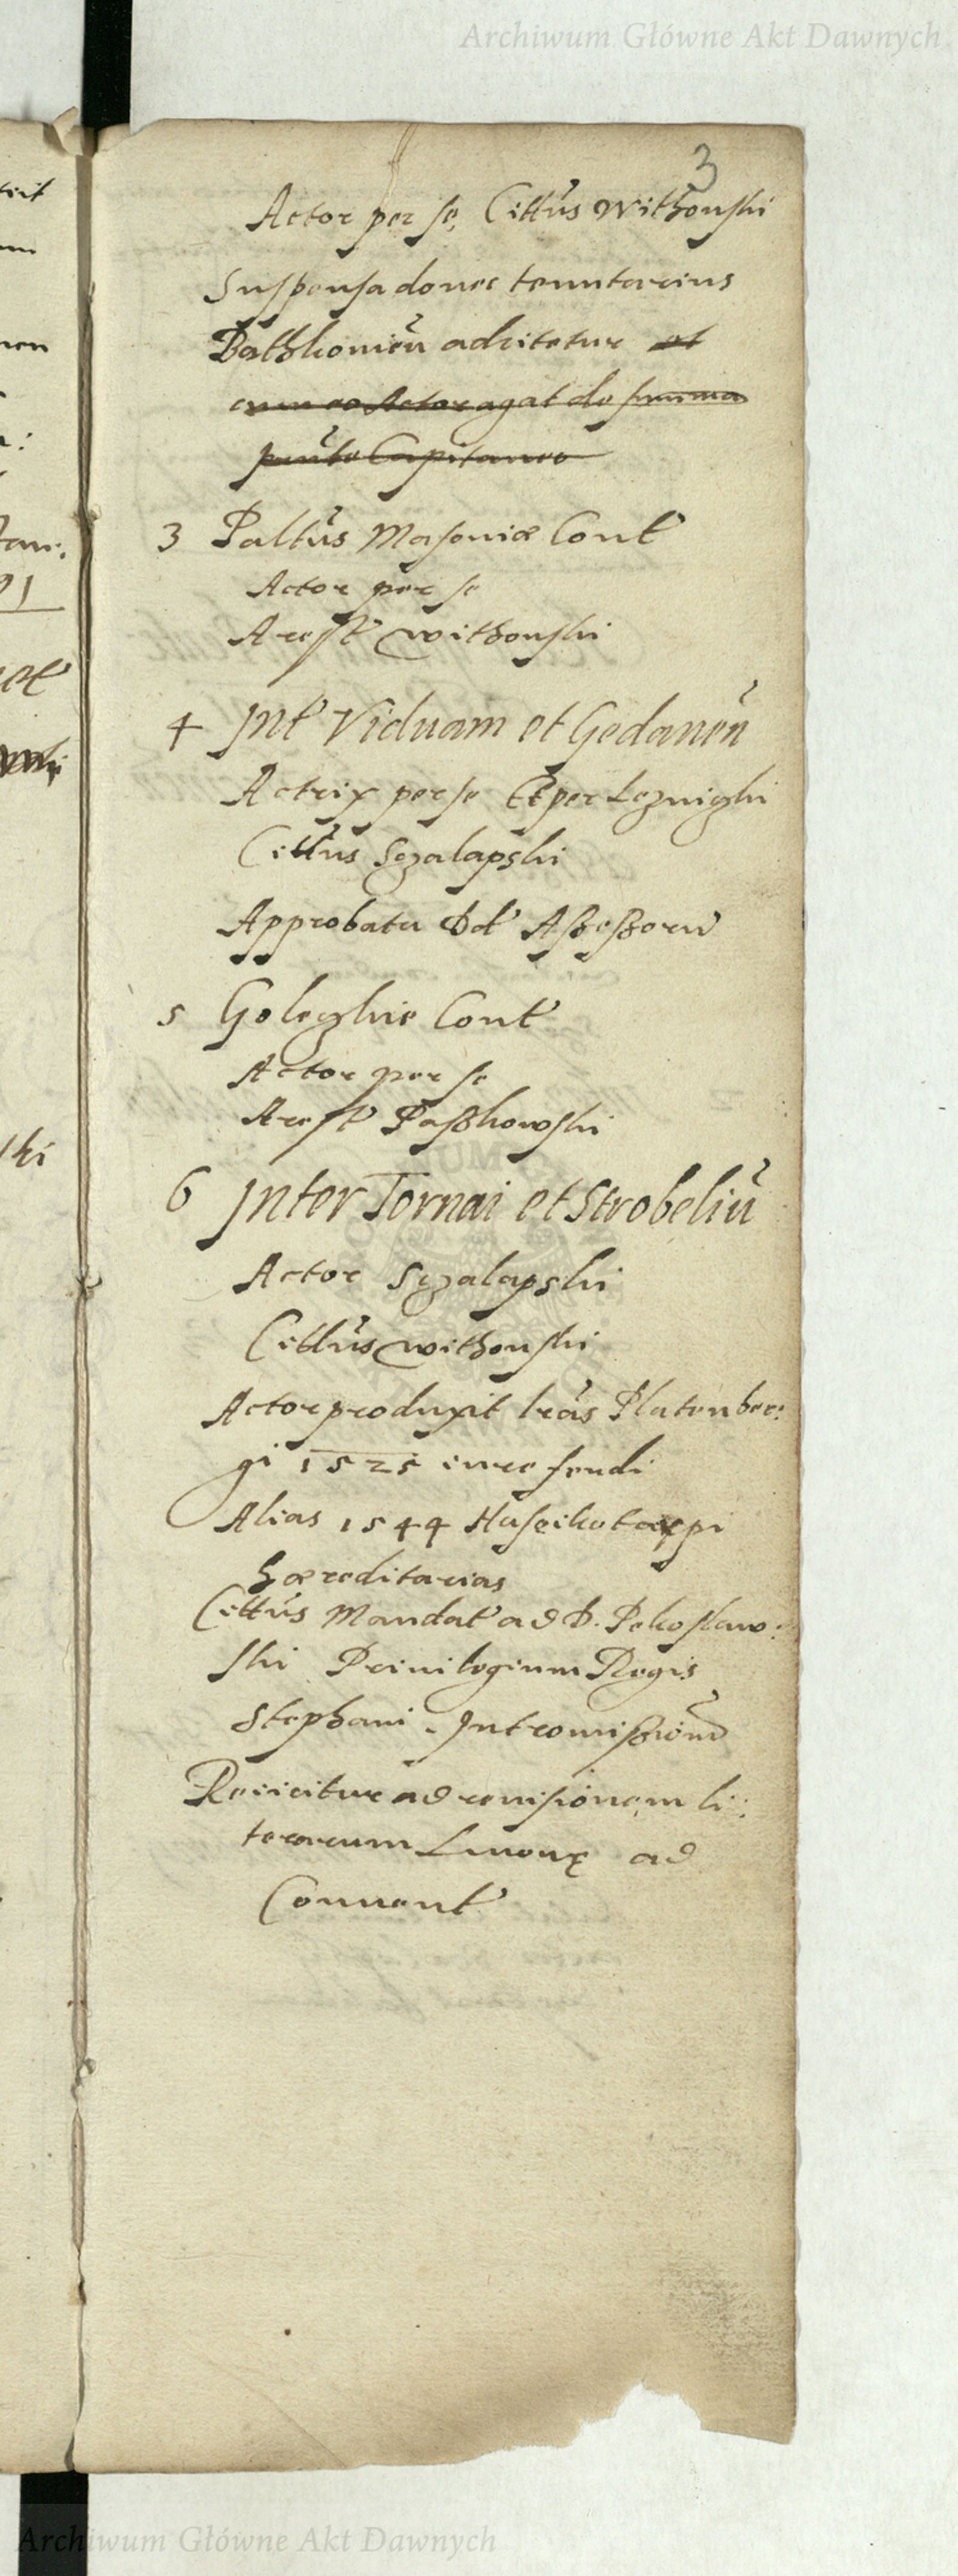 Archiwum Główne Akt Dawnych
3
Actor per se, Cittus Withonski
Suspensa donec tenutarius
adcitetur et
cum eo Actor agat de summa
Capitaneo
3 Paltus Masoniæ Cont
Actor per se
Arest Withonski
4 Int Viduam et Gedanen
Actrix per se Et per Leznighi
Cittus Szalapski
Approbatu Dd Aßeßoru
5 Goleghie Cont
Actor per se
Arest Paßkowski
6 Inter Tornai et Strobeliu
Actor Szalapski
Cittus Withonski
Actor produxit lras Platenber:
gi 1525 iure feudi
Alias 1544
hæreditarias
Cittus Mandat ad D. Pekoslaw:
ski Priuilegium Regis
Stephani. Intromißion
Reiicitur ad reuisionem li:
terarum Liuonię ad
Conuent
Archiwum Główne Akt Dawnych